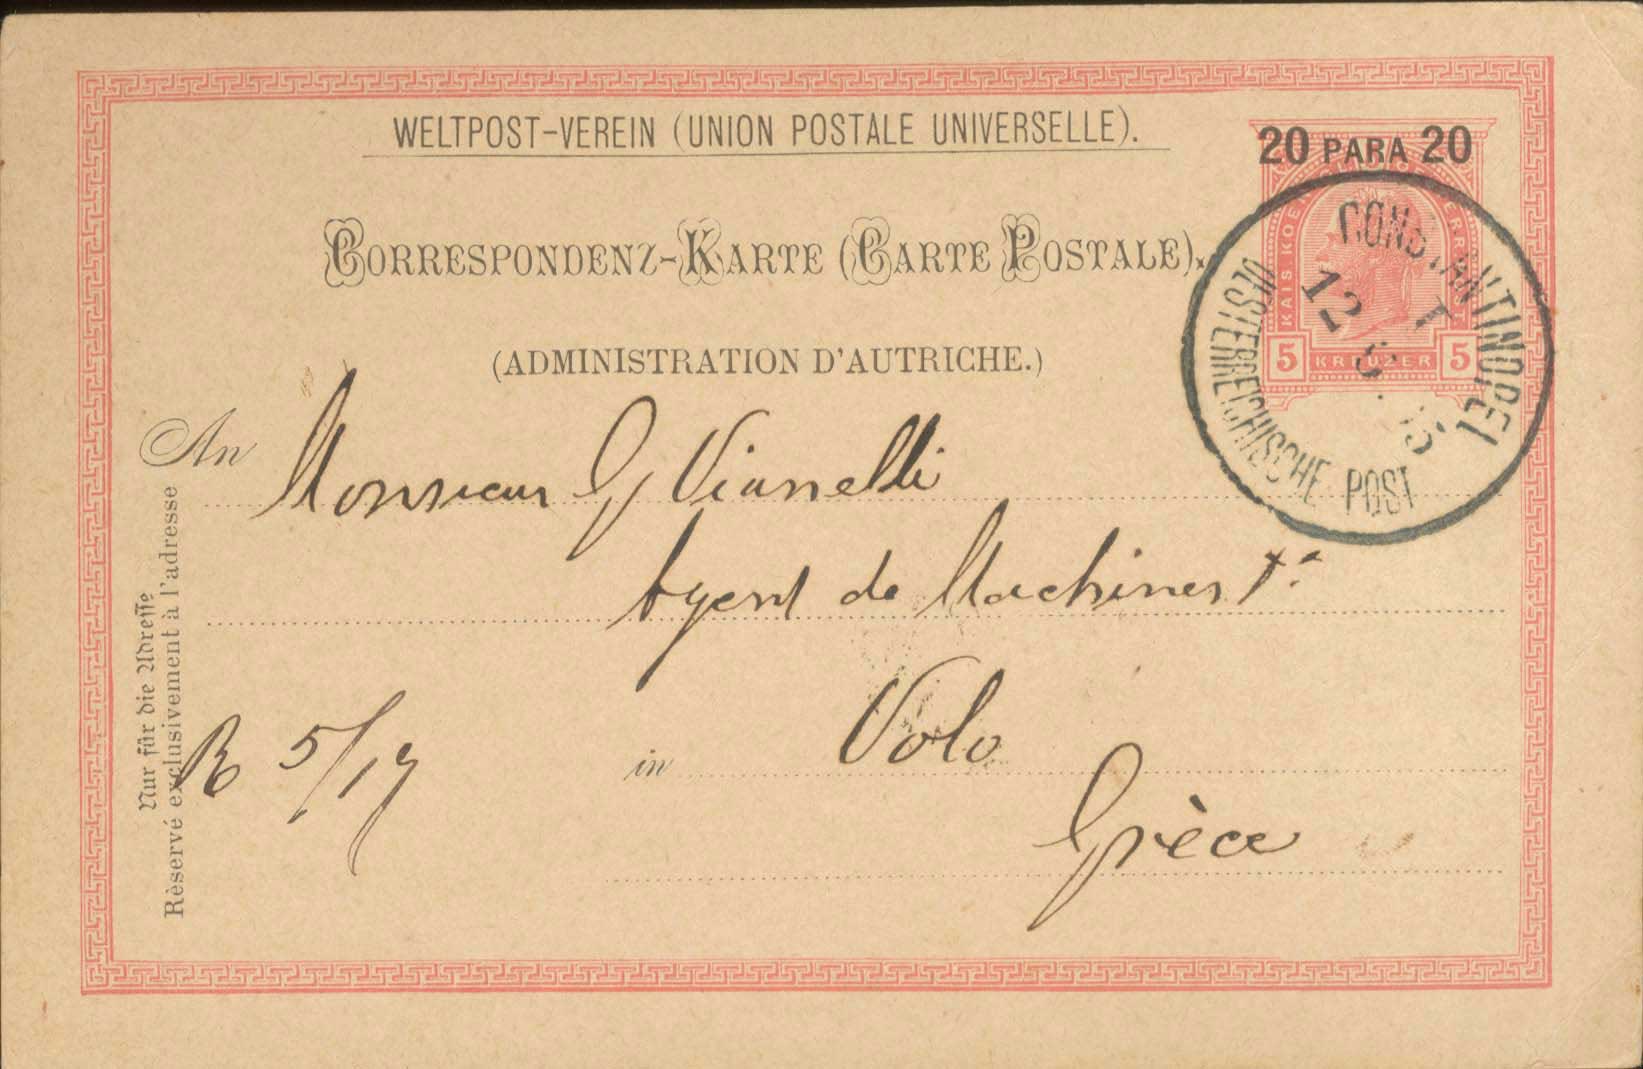 WELTPOST-VEREIN (UNION POSTALE UNIVERSELLE).
20 PARA 20
CORRESPONDENZ-KARTE (CARTE POSTALE).
(ADMINISTRATION D'AUTRICHE.)
KREUZER
5 5
CONSTANTINOPEL I
12
OESTERREICHISCHE POST
An Monsieur G Vianelli
Agent de Machines
in Volo
Grèce
R 5/17
Nur für die Adresse
Rèservé exclusivement à l'adresse